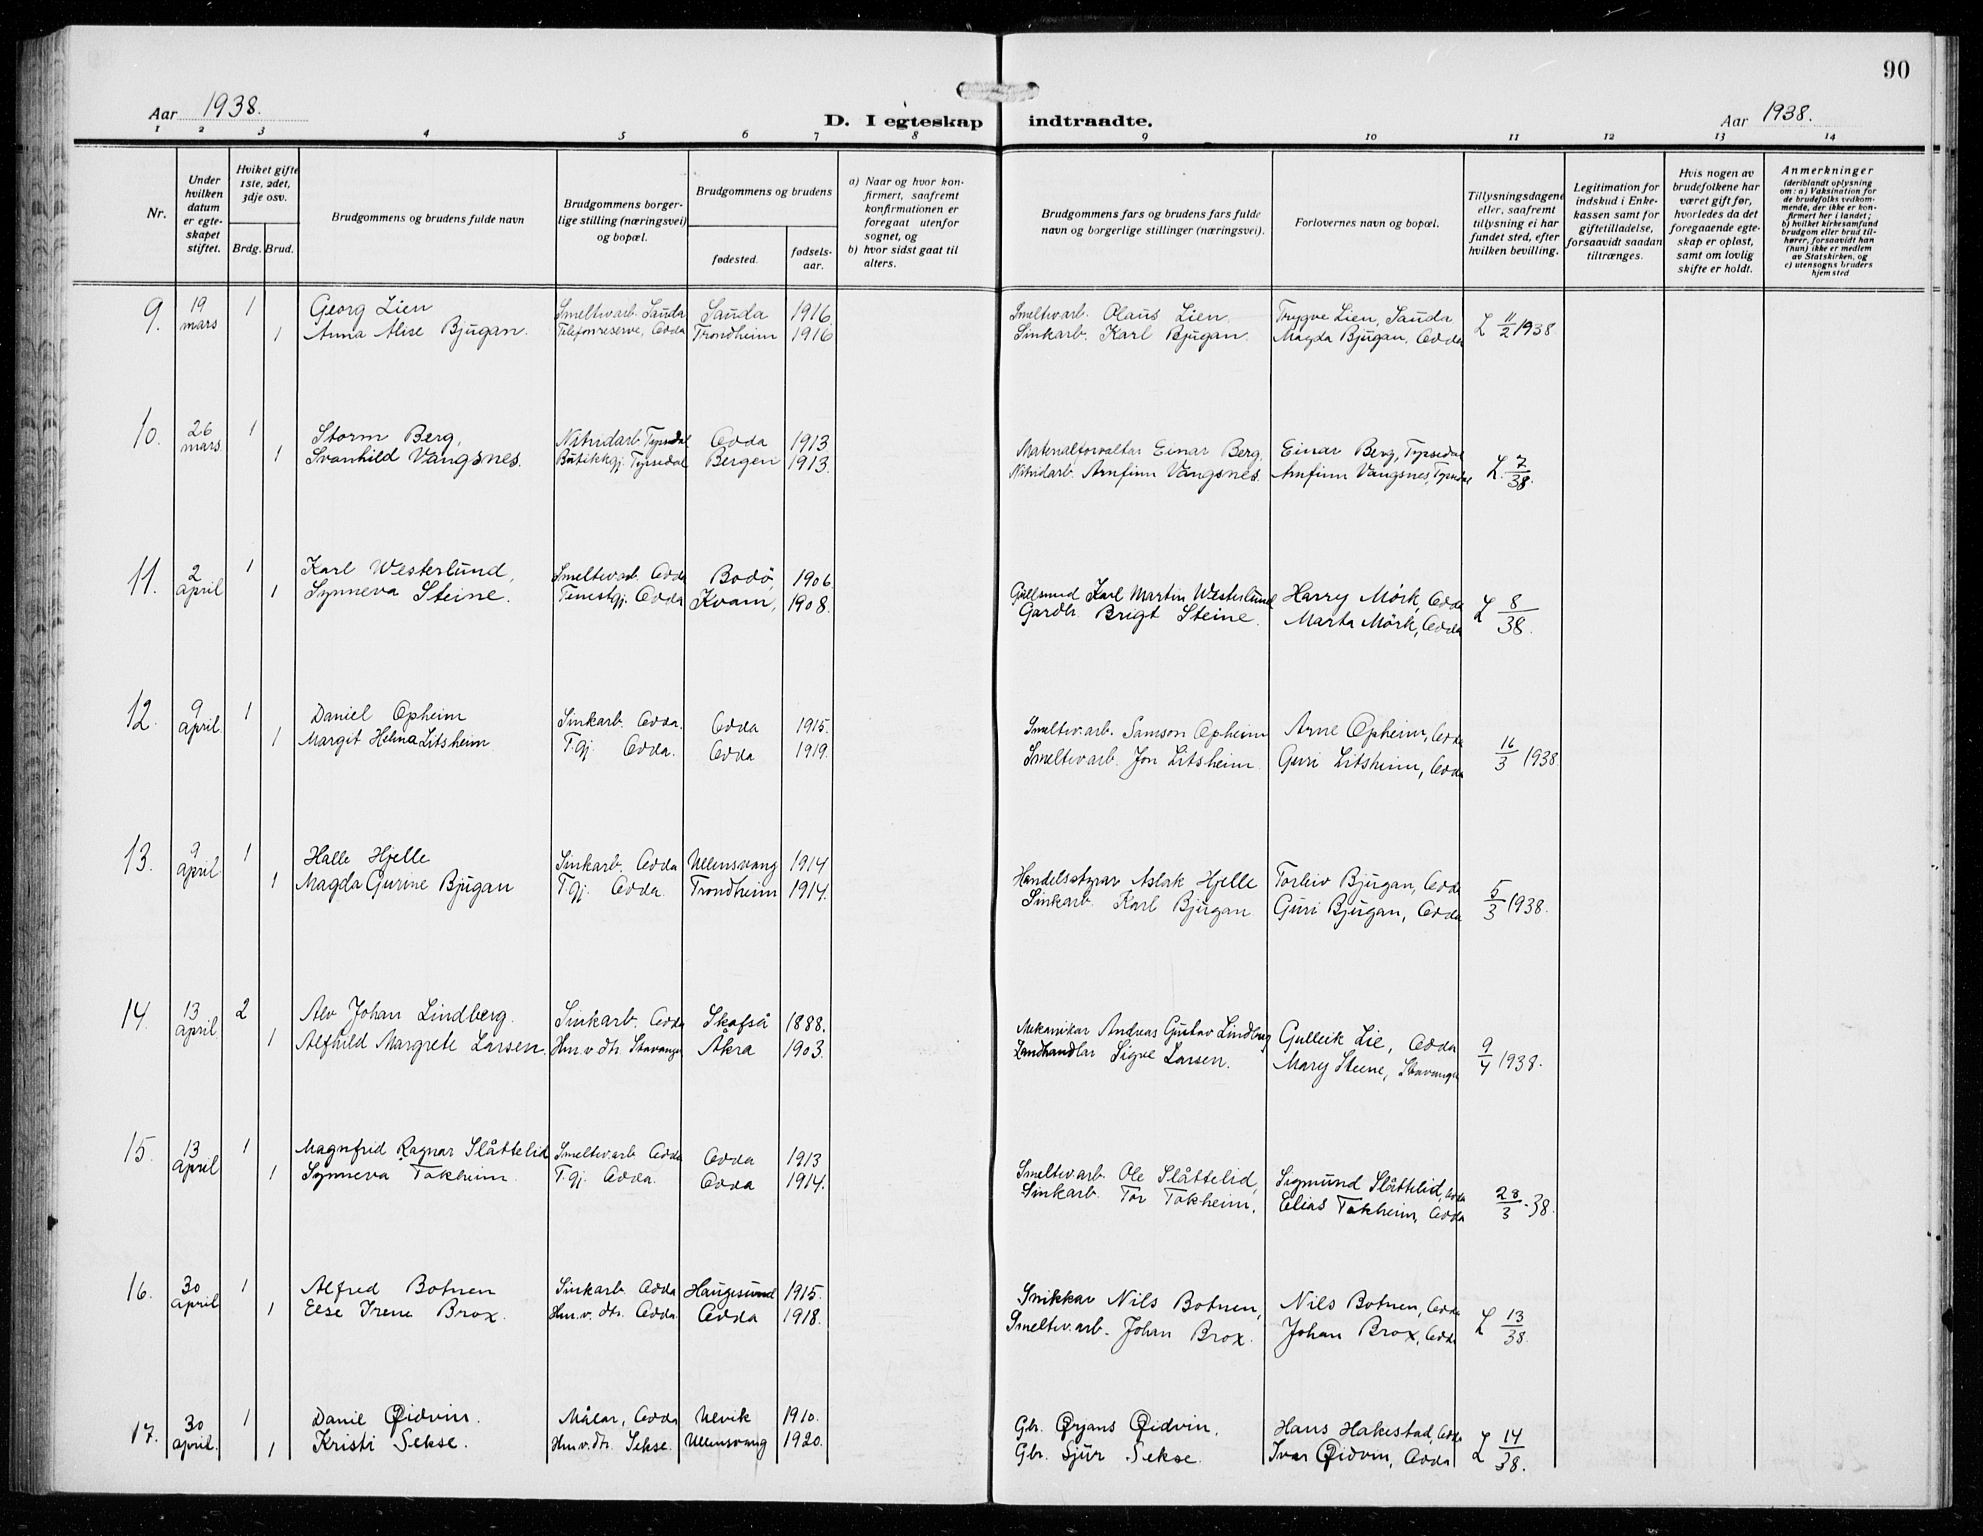 90
Aar 1938.
D. I egteskap indtraadte.
Aar 1938.
1 2 3 4 5 6 7 8 9 10 11 12 13 14
Nr.
Under hvilken datum er egteskapet stiftet.
Hviket gifte 1ste, 2det, 3dje osv.
Brdg. Brud.
Brudgommens og brudens fulde navn
Brudgommens borgerlige stilling (næringsvei) og bopæl.
Brudgommens og brudens
fødested. fødselsaar.
a) Naar og hvor konfirmert, saafremt konfirmationen er foregaat utenfor sognet, og
b) hvor sidst gaat til alters.
Brudgommens fars og brudens fars fulde navn og borgerlige stillinger (næringsvei).
Forlovernes navn og bopæl.
Tillysningsdagene eller, saafremt tillysning ei har fundet sted, efter hvilken bevilling.
Legitimation for indskud i Enkekassen samt for giftetilladelse, forsaavidt saadan tiltrænges.
Hvis nogen av brudefolkene har været gift før, hvorledes da det foregaaende egteskap er opløst, samt om lovlig skifte er holdt.
Anmerkninger (deriblandt oplysning om: a) Vaksination for de brudefolks vedkommende, der ikke er konfirmert her i landet; b) hvilket kirkesamfund brudgom eller brud tilhører, forsaavidt han (hun) ikke er medlem av Statskirken, og c) utensogns bruders hjemsted
9. 19 mars 1 Georg Lien Smeltevarb. Sauda Sauda 1916 Smeltevarb. Olaus Lien. Trygve Lien, Sauda L 11/2 1938.
1 Anna Alise Bjugan. Telefonreserve, Odda Trondheim 1916 Sinkarb. Karl Bjugan. Magda Bjugan, Odda
10. 26 mars 1 Storm Berg, Nitridarb. Tyssedal Odda 1913 Materialforvaltar Einar Berg, Einar Berg, Tyssedal L. 7/38.
1 Svanhild Vangsnes. Butikkgj. Tyssedal Bergen 1913. Nitridarb. Arnfinn Vangsnes. Arnfinn Vangsnes, Tyssedal
11. 2 april 1 Karl Westerlund, Smeltev.arb. Odda Bodö, 1906 Gullsmed Karl Martin Westerlund Harry Mörk, Odda L 8/38.
1 Synneva Steine. Tenestgj. Odda Kvam, 1908. Gardbr. Brigt Steine. Marta Mörk, Odda
12. 9 april 1 Daniel Opheim Sinkarb. Odda. Odda 1915. Smeltev.arb. Samson Opheim Arne Opheim, Odda 16/3 1938.
1 Margit Helma Litsheim T.gj. Odda. Odda 1919. Smeltevarb. Jon Litsheim. Guri Litsheim, Odda
13. 9 april 1 Halle Hjelle Sinkarb. Odda Ullensvang 1914 Handelsstyrar Aslak Hjelle Torleiv Bjugan, Odda 5/3 1938.
1 Magda Gurine Bjugan T.gj. Odda. Trondheim 1914. Sinkarb. Karl Bjugan Guri Bjugan, Odda
14. 13 april 2 Alv Johan Lindberg. Sinkarb. Odda Skafså 1888. Mekanikar Andreas Gustav Lindberg Gulleik Lie, Odda 9/4 1938.
1 Alfhild Margrete Larsen. Hm.v.dtr. Stavanger Åkra 1903. Landhandlar Sigve Larsen. Mary Steene, Stavanger
15. 13 april 1 Magnfrid Ragnar Slåttelid Smeltev.arb. Odda Odda 1913 Smeltev.arb. Ole Slåttelid, Sigmund Slåttelid, Odda 28/3-38.
1 Synneva Tokheim. T.gj. Odda. Odda 1914. Sinkarb. Tor Tokheim. Elias Tokheim, Odda
16. 30 april 1 Alfred Botnen Sinkarb. Odda Haugesund 1915. Snikkar Nils Botnen, Nils Botnen, Odda L 13/38.
1 Else Irene Brox. Hm.v. dtr. Odda. Odda 1918. Smeltev.arb. Johan Brox. Johan Brox, Odda
17. 30 april. 1 Daniel Øidvin. Målar, Odda Ulvik 1910. Gbr. Ørjans Øidvin. Hans Hakestad, Odda L 14/38.
1 Kristi Sekse. Hm.v.dtr. Sekse. Ullensvang 1920. Gbr. Sjur Sekse. Ivar Øidvin, Odda